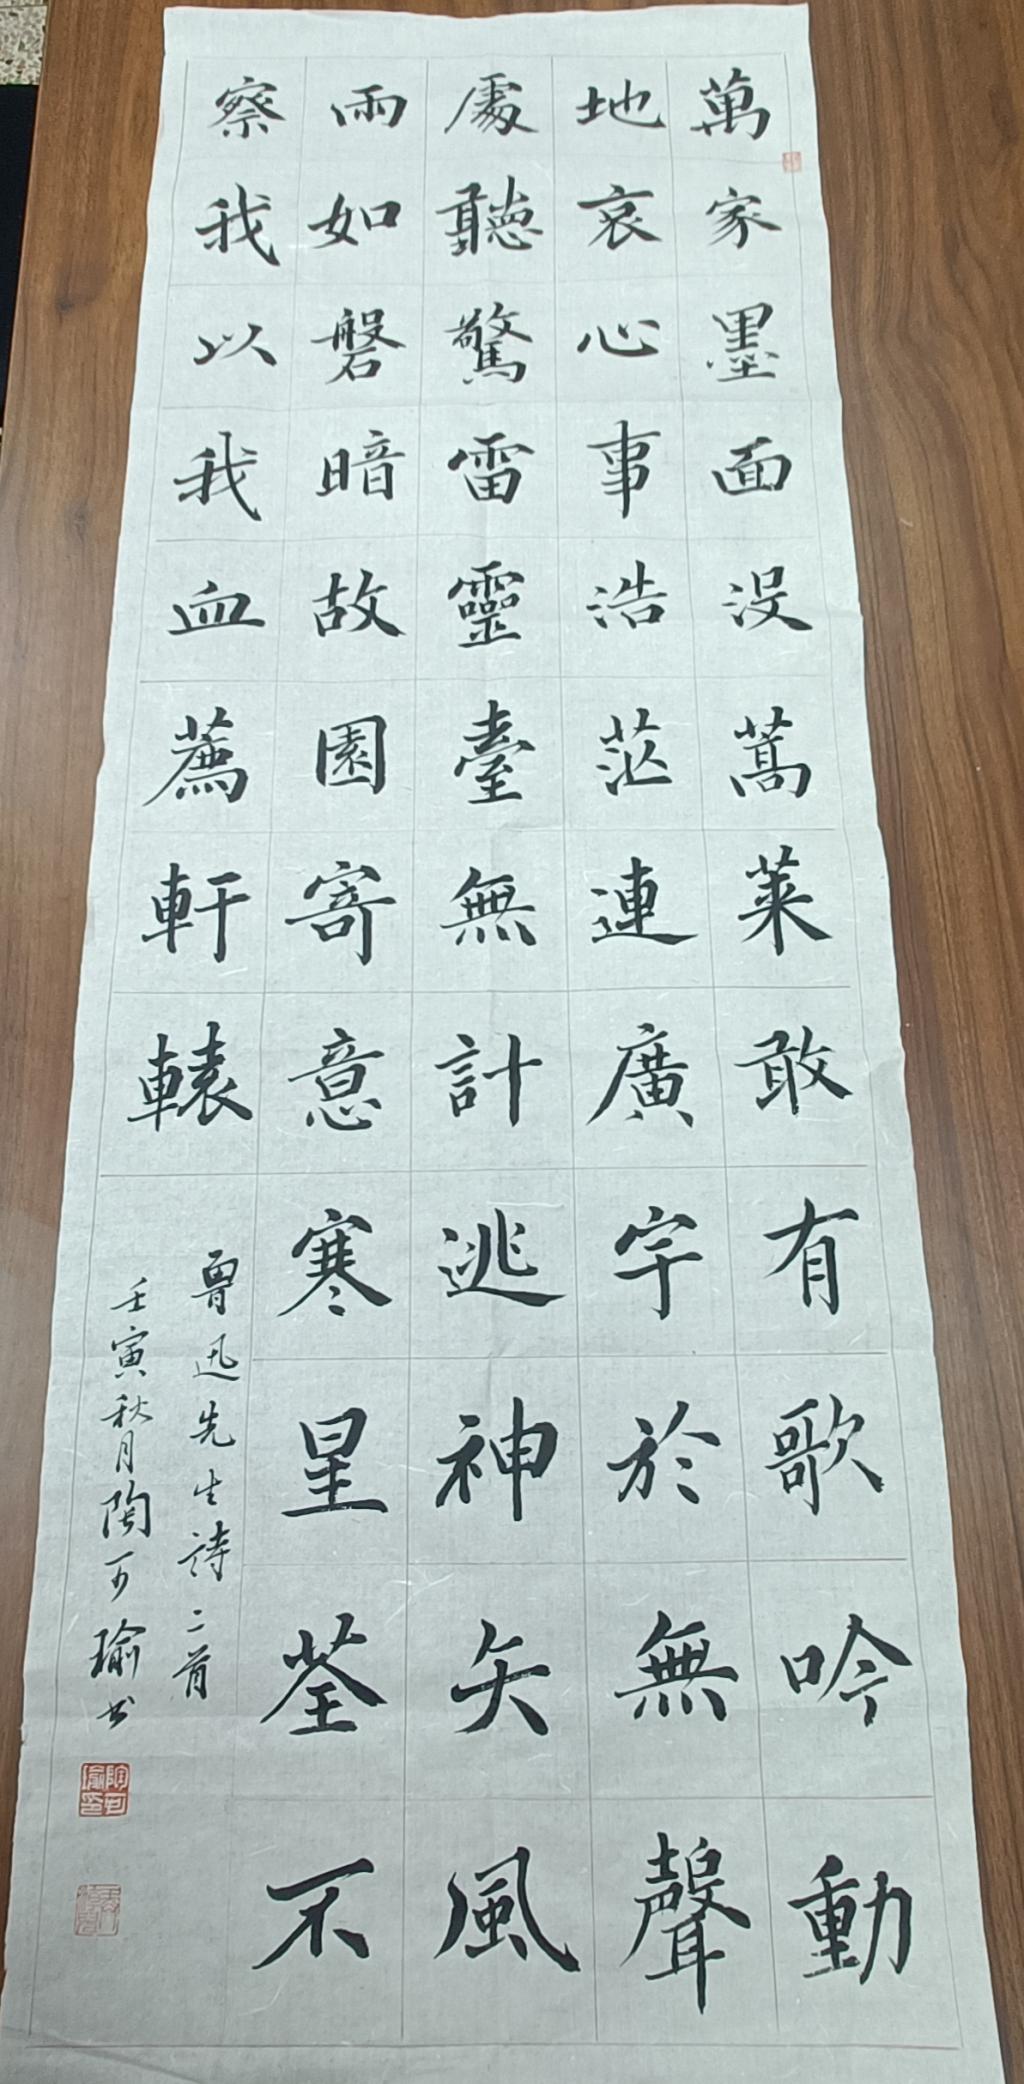 萬家墨面没蒿萊敢有歌吟動
地哀心事浩茫連廣宇於無聲
處聽驚雷靈臺無計逃神矢風
雨如磐暗故園寄意寒星荃不
察我以我血薦軒轅
魯迅先生詩二首
壬寅秋月陶可瑜书
陶可瑜印